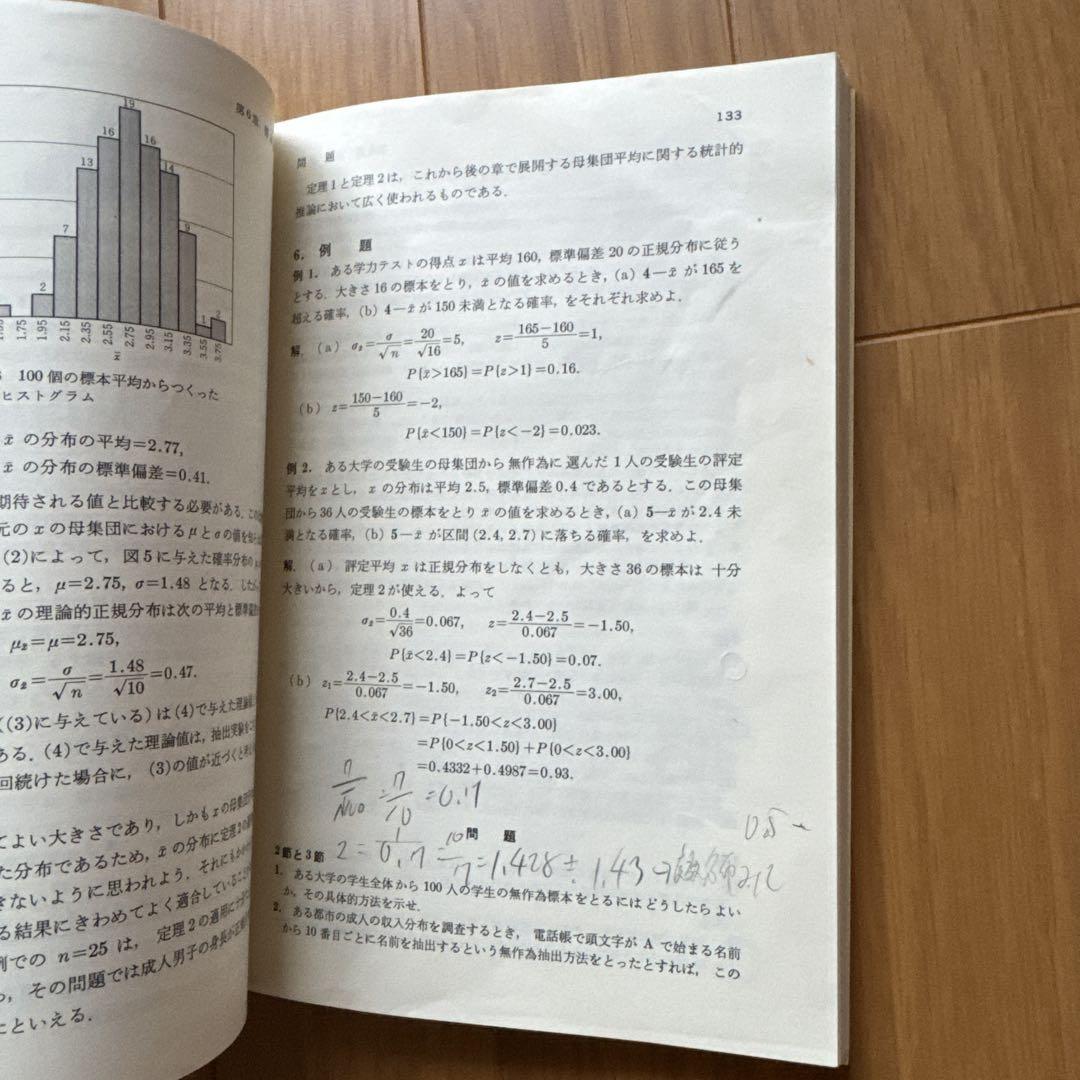 第6章
19
16
16
14
13
9
7
2
1
2
1.95
2.15
2.35
2.55
2.75
2.95
3.15
3.35
3.55
3.75
x̄
100個の標本平均からつくった
ヒストグラム
x̄ の分布の平均=2.77,
x̄ の分布の標準偏差=0.41.
期待される値と比較する必要がある.
元の x の母集団における μ と σ の値を
(2)によって, 図5に与えた確率分布の
ると, μ=2.75, σ=1.48 となる.
x̄ の理論的正規分布は次の平均と標準偏差
μx̄=μ=2.75,
σx̄=σ/√n=1.48/√10=0.47.
((3)に与えている)は(4)で与えた理論値
ある. (4)で与えた理論値は, 抽出実験を
回続けた場合に, (3)の値が近づくと
てよい大きさであり, しかも x の母集団
た分布であるため, x̄ の分布に定理2の
きないように思われよう. それにもかか
る結果にきわめてよく適合していること
例での n=25 は, 定理2の適用に
, その問題では成人男子の身長が正規
たといえる.
133
問 題
定理1と定理2は, これから後の章で展開する母集団平均に関する統計的
推論において広く使われるものである.
6. 例 題
例 1. ある学力テストの得点 x は平均 160, 標準偏差 20 の正規分布に従う
とする. 大きさ 16 の標本をとり, x̄ の値を求めるとき, (a) 4—x̄ が 165 を
超える確率, (b) 4—x̄ が 150 未満となる確率, をそれぞれ求めよ.
解. (a) σx̄=σ/√n=20/√16=5, z=165−160/5=1,
P{x̄>165}=P{z>1}=0.16.
(b) z=150−160/5=−2,
P{x̄<150}=P{z<−2}=0.023.
例 2. ある大学の受験生の母集団から 無作為に 選んだ 1 人の受験生の評定
平均を x とし, x の分布は平均 2.5, 標準偏差 0.4 であるとする. この母集
団から 36 人の受験生の標本をとり x̄ の値を求めるとき, (a) 5—x̄ が 2.4 未
満となる確率, (b) 5—x̄ が区間 (2.4, 2.7) に落ちる確率, を求めよ.
解. (a) 評定平均 x は正規分布をしなくとも, 大きさ 36 の標本は 十分
大きいから, 定理2が使える. よって
σx̄=0.4/√36=0.067, z=2.4−2.5/0.067=−1.50,
P{x̄<2.4}=P{z<−1.50}=0.07.
(b) z₁=2.4−2.5/0.067=−1.50, z₂=2.7−2.5/0.067=3.00,
P{2.4<x̄<2.7}=P{−1.50<z<3.00}
=P{0<z<1.50}+P{0<z<3.00}
=0.4332+0.4987=0.93.
7/√100=7/10=0.7
問 題
2=1/0.7=10/7=1.428≒1.43
2節と3節
1. ある大学の学生全体から 100 人の学生の無作為標本をとるには どうしたら よい
か. その具体的方法を示せ.
2. ある都市の成人の収入分布を調査するとき, 電話帳で頭文字が A で始まる名前
から 10 番目ごとに名前を抽出するという無作為抽出方法をとったとすれば, この